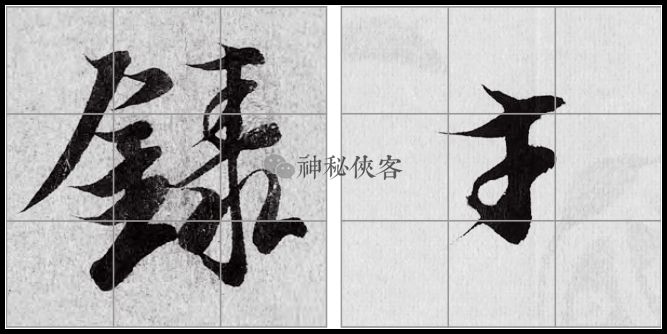 錄
神秘俠客